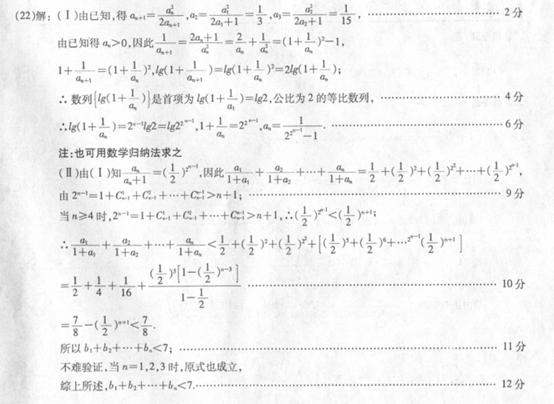 (22)解：(Ⅰ)由已知，得 aₙ₊₁=aₙ²/(2aₙ+1), a₂=a₁²/(2a₁+1)=1/3, a₃=a₂²/(2a₂+1)=1/15, …… 2分
由已知得 aₙ>0,因此 1/aₙ₊₁=(2aₙ+1)/aₙ²=2/aₙ+1/aₙ²=(1+1/aₙ)²-1,
1+1/aₙ₊₁=(1+1/aₙ)²,lg(1+1/aₙ₊₁)=lg(1+1/aₙ)²=2lg(1+1/aₙ);
∴ 数列{lg(1+1/aₙ)}是首项为 lg(1+1/a₁)=lg2,公比为 2 的等比数列, …… 4分
∴lg(1+1/aₙ)=2^(n-1)lg2=lg2^(2^(n-1)),1+1/aₙ=2^(2^(n-1)),aₙ=1/(2^(2^(n-1))-1). …… 6分
注:也可用数学归纳法求之
(Ⅱ)由(Ⅰ)知 aₙ/(aₙ+1)=(1/2)^(2^(n-1)),因此 a₁/(1+a₁)+a₂/(1+a₂)+…+aₙ/(1+aₙ)=1/2+(1/2)²+(1/2)^(2²)+…+(1/2)^(2^(n-1)),
由 2^(n-1)=1+C¹ₙ₋₁+C²ₙ₋₁+…+Cⁿ⁻¹ₙ₋₁>n+1; …… 9分
当 n≥4 时,2^(n-1)=1+C¹ₙ₋₁+C²ₙ₋₁+…+Cⁿ⁻¹ₙ₋₁>n+1,∴(1/2)^(2^(n-1))<(1/2)^(n+1);
∴ a₁/(1+a₁)+a₂/(1+a₂)+…+aₙ/(1+aₙ)<1/2+(1/2)²+(1/2)^(2²)+[(1/2)⁵+(1/2)⁶+…2^(n-1)(1/2)^(n+1)]
=1/2+1/4+1/16+(1/2)⁵[1-(1/2)^(n-3)]/(1-1/2) …… 10分
=7/8-(1/2)^(n+1)<7/8.
所以 b₁+b₂+…+bₙ<7; …… 11分
不难验证,当 n=1,2,3 时,原式也成立,
综上所述,b₁+b₂+…+bₙ<7. …… 12分